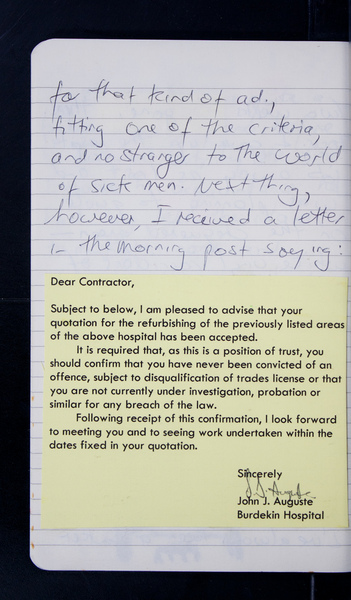 for that kind of ad.,
fitting one of the criteria,
and no stranger to the world
of sick men. Next thing,
however, I received a letter
in the morning post saying:
Dear Contractor,
Subject to below, I am pleased to advise that your
quotation for the refurbishing of the previously listed areas
of the above hospital has been accepted.
It is required that, as this is a position of trust, you
should confirm that you have never been convicted of an
offence, subject to disqualification of trades license or that
you are not currently under investigation, probation or
similar for any breach of the law.
Following receipt of this confirmation, I look forward
to meeting you and to seeing work undertaken within the
dates fixed in your quotation.
Sincerely
J.J. Auguste
John J. Auguste
Burdekin Hospital